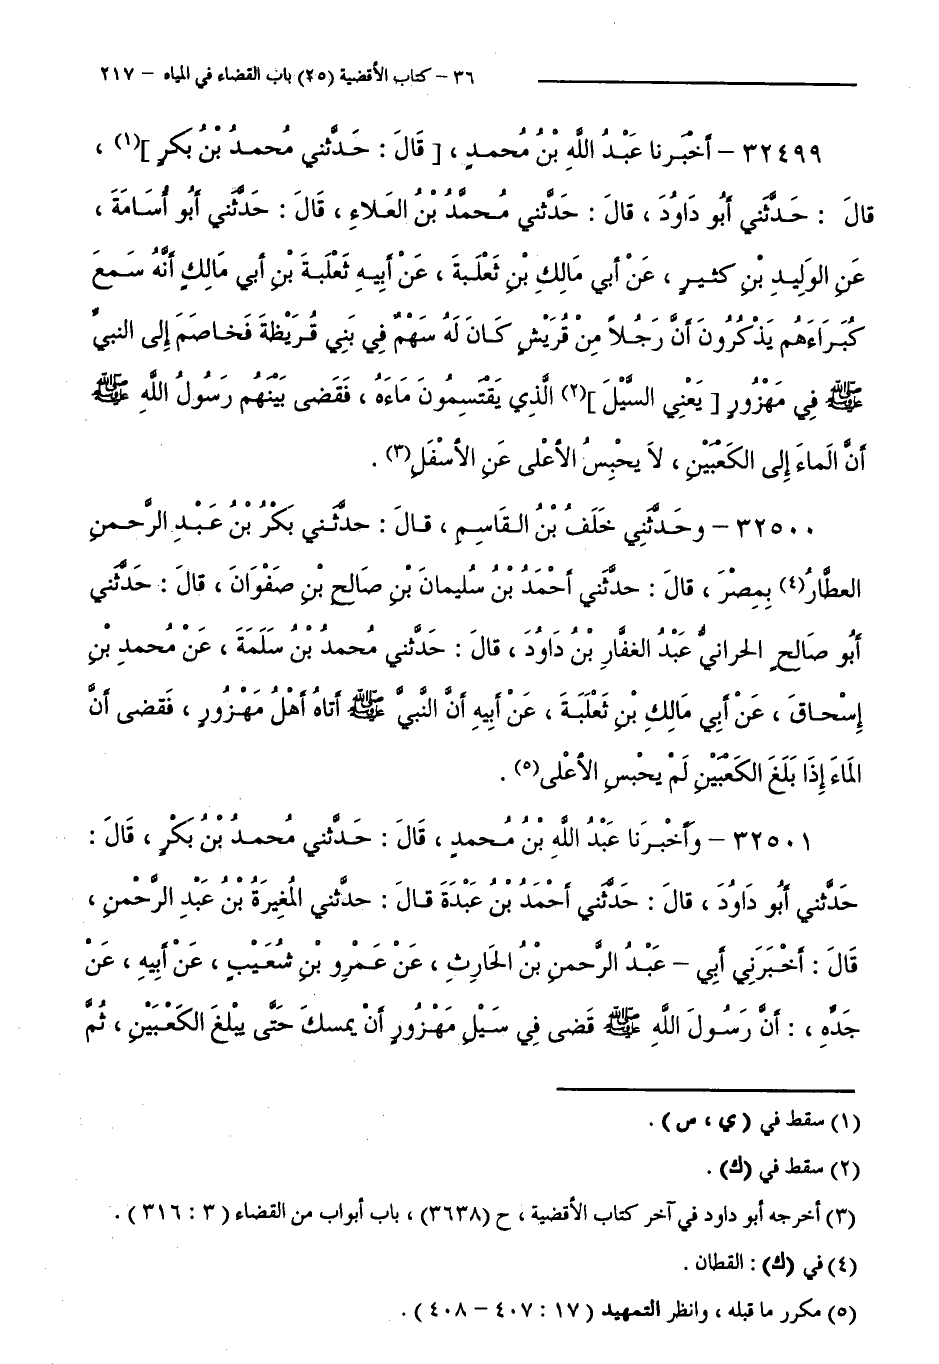 ٣٦ - كتاب الأقضية (٢٥) باب القضاء في المياه - ٢١٧
٣٢٤٩٩ - أَخْبَرنا عَبْدُ اللَّهِ بْنُ مُحمدٍ ، [ قَالَ : حَدَّثني مُحمدُ بْنُ بَكرٍ ](١) ،
قالَ : حَدَّثَني أَبُو دَاودَ ، قالَ : حَدَّثني مُحمَّدُ بْنُ العَلاءِ ، قَالَ : حَدَّثَني أَبُو أُسَامَةَ ،
عَنِ الوَلِيدِ بْنِ كثيرٍ ، عَنْ أبي مَالِكِ بْنِ ثَعْلَبةَ ، عَنْ أَبِيهِ ثَعْلَبةَ بْنِ أبي مَالكٍ أَنَّهُ سَمعَ
كُبَرَاءَهُم يَذْكُرُونَ أَنَّ رَجُلاً مِنْ قُرَيْشٍ كَانَ لَهُ سَهْمٌ فِي بَنِي قُرَيْظةَ فَخاصَمَ إلى النبيِّ
ﷺ فِي مَهْزُورٍ [ يَعْنِي السَّيْلَ ](٢) الَّذِي يَقْتَسِمُونَ مَاءَهُ ، فَقَضى بَيْنَهُم رَسُولُ اللَّهِ ﷺ
أَنَّ الَماءَ إِلى الكَعْبَيْنِ ، لاَ يحْبِسُ الأَعْلى عَنِ الأَسْفَلِ(٣) .
٣٢٥٠٠ - وحَدَّثَنِي خَلَفُ بْنُ القَاسِمِ ، قَالَ : حدَّثَني بَكْرُ بْنُ عَبْدِ الرَّحمنِ
العطَّارُ(٤) بِمِصْرَ ، قَالَ : حدَّثَني أَحْمَدُ بْنُ سُليمانَ بْنِ صَالحِ بْنِ صَفْوَانَ ، قالَ : حَدَّثَني
أَبُو صَالحٍ الحرانيُّ عَبْدُ الغفَّارِ بْنُ دَاودَ ، قالَ : حَدَّثني مُحمدُ بْنُ سَلَمَةَ ، عَنْ مُحمدِ بْنِ
إِسْحاقَ ، عَنْ أَبِي مَالِكِ بْنِ ثَعْلَبَةَ ، عَنْ أَبِيهِ أَنَّ النَّبِيَّ ﷺ أَتاهُ أَهْلُ مَهْزُورٍ ، فَقضى أَنَّ
الَماءَ إِذَا بَلَغَ الكَعْبَيْنِ لَمْ يحْبسِ الأَعْلى(٥) .
٣٢٥٠١ - وَأَخْبرَنَا عَبْدُ اللَّهِ بْنُ مُحمدٍ ، قَالَ : حَدَّثني مُحمدُ بْنُ بَكْرٍ ، قَالَ :
حَدَّثَني أَبُو دَاوُدَ ، قالَ : حَدَّثَني أَحْمَدُ بْنُ عَبْدَةَ قالَ : حدَّثني المُغيرَةُ بْنُ عَبْدِ الرَّحْمنِ ،
قَالَ : أَخْبَرَنِي أَبي - عَبْدُ الرَّحمنِ بْنُ الحَارِثِ ، عَنْ عَمْرِو بْنِ شُعَيْبٍ ، عَنْ أَبِيهِ ، عَنْ
جَدِّهِ ، : أَنَّ رَسُولَ اللَّهِ ﷺ قَضى فِي سَيْلِ مَهْزُورٍ أَنْ يمسكَ حَتَّى يبْلغَ الكَعْبَيْنِ ، ثُمَّ
(١) سقط في (ي ، س) .
(٢) سقط في (ك) .
(٣) أخرجه أبو داود في آخر كتاب الأقضية ، ح (٣٦٣٨) ، باب أبواب من القضاء ( ٣ : ٣١٦ ) .
(٤) في (ك) : القطان .
(٥) مكرر ما قبله ، وانظر التمهيد ( ١٧ : ٤٠٧ - ٤٠٨ ) .